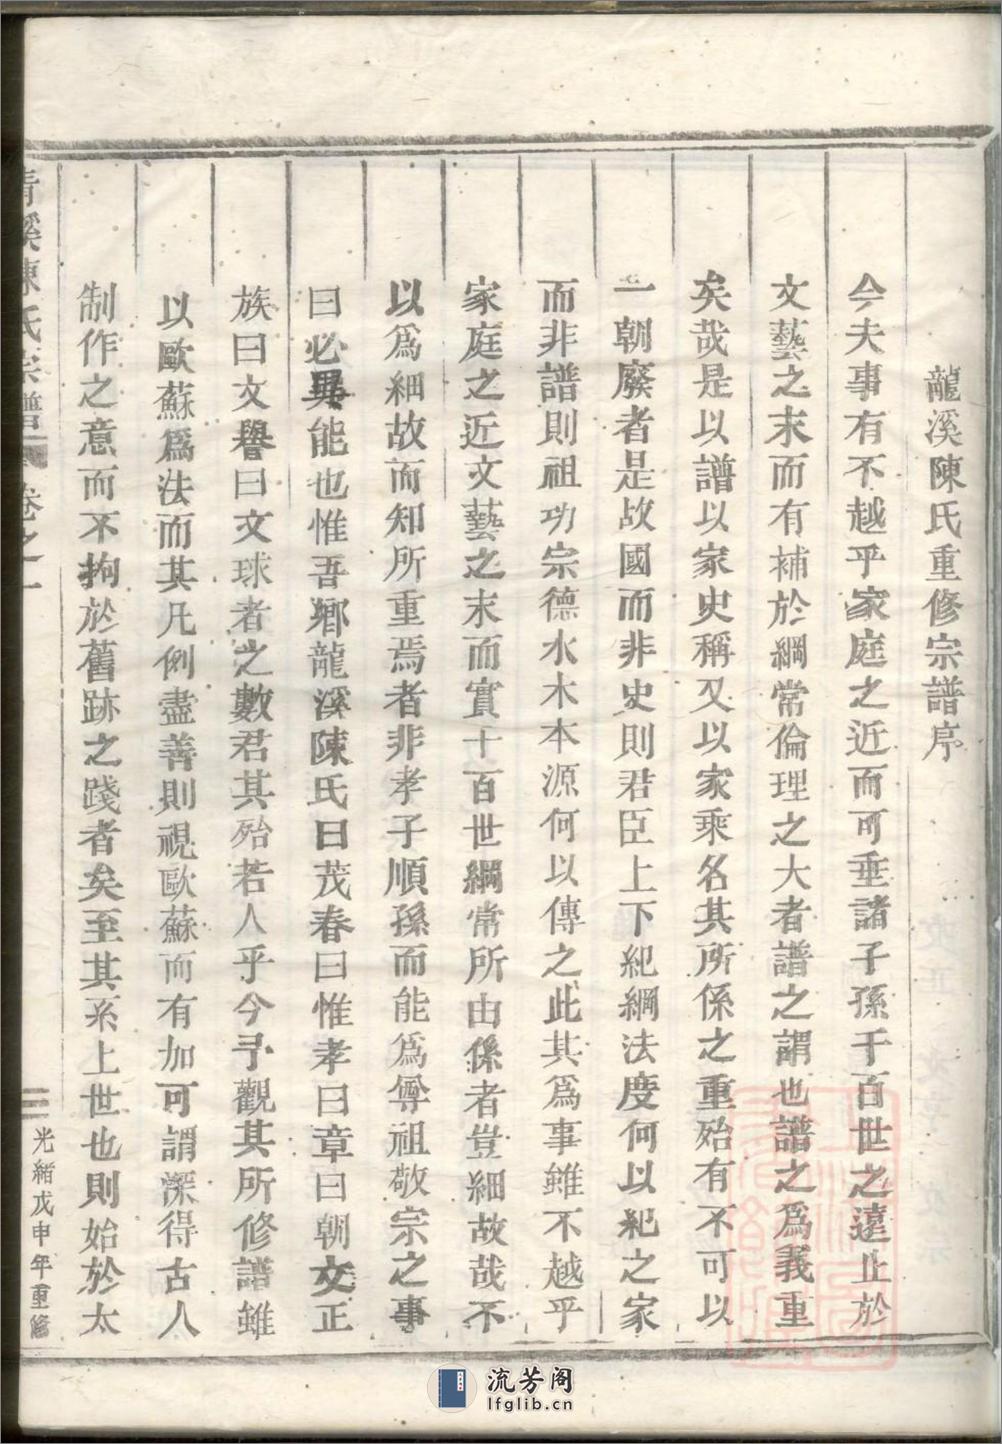 龍溪陳氏重修宗譜序
今夫事有不越乎家庭之近而可垂諸子孫千百世之遠止於
文藝之末而有補於綱常倫理之大者譜之謂也譜之爲義重
矣哉是以譜以家史稱又以家乘名其所係之重殆有不可以
一朝廢者是故國而非史則君臣上下紀綱法度何以紀之家
而非譜則祖功宗德水木本源何以傳之此其爲事雖不越乎
家庭之近文藝之末而實十百世綱常所由係者豈細故哉不
以爲細故而知所重焉者非孝子順孫而能爲尊祖敬宗之事
曰必異能也惟吾鄉龍溪陳氏曰茂春曰惟孝曰章曰朝文正
族曰文譽曰文球者之數君其殆若人乎今予觀其所修譜雖
以歐蘇爲法而其凡例盡善則視歐蘇而有加可謂深得古人
制作之意而不拘於舊跡之踐者矣至其系上世也則始於太
清溪陳氏宗譜 卷之一 二 光緒戊申年重修
流芳阁
lfglib.cn